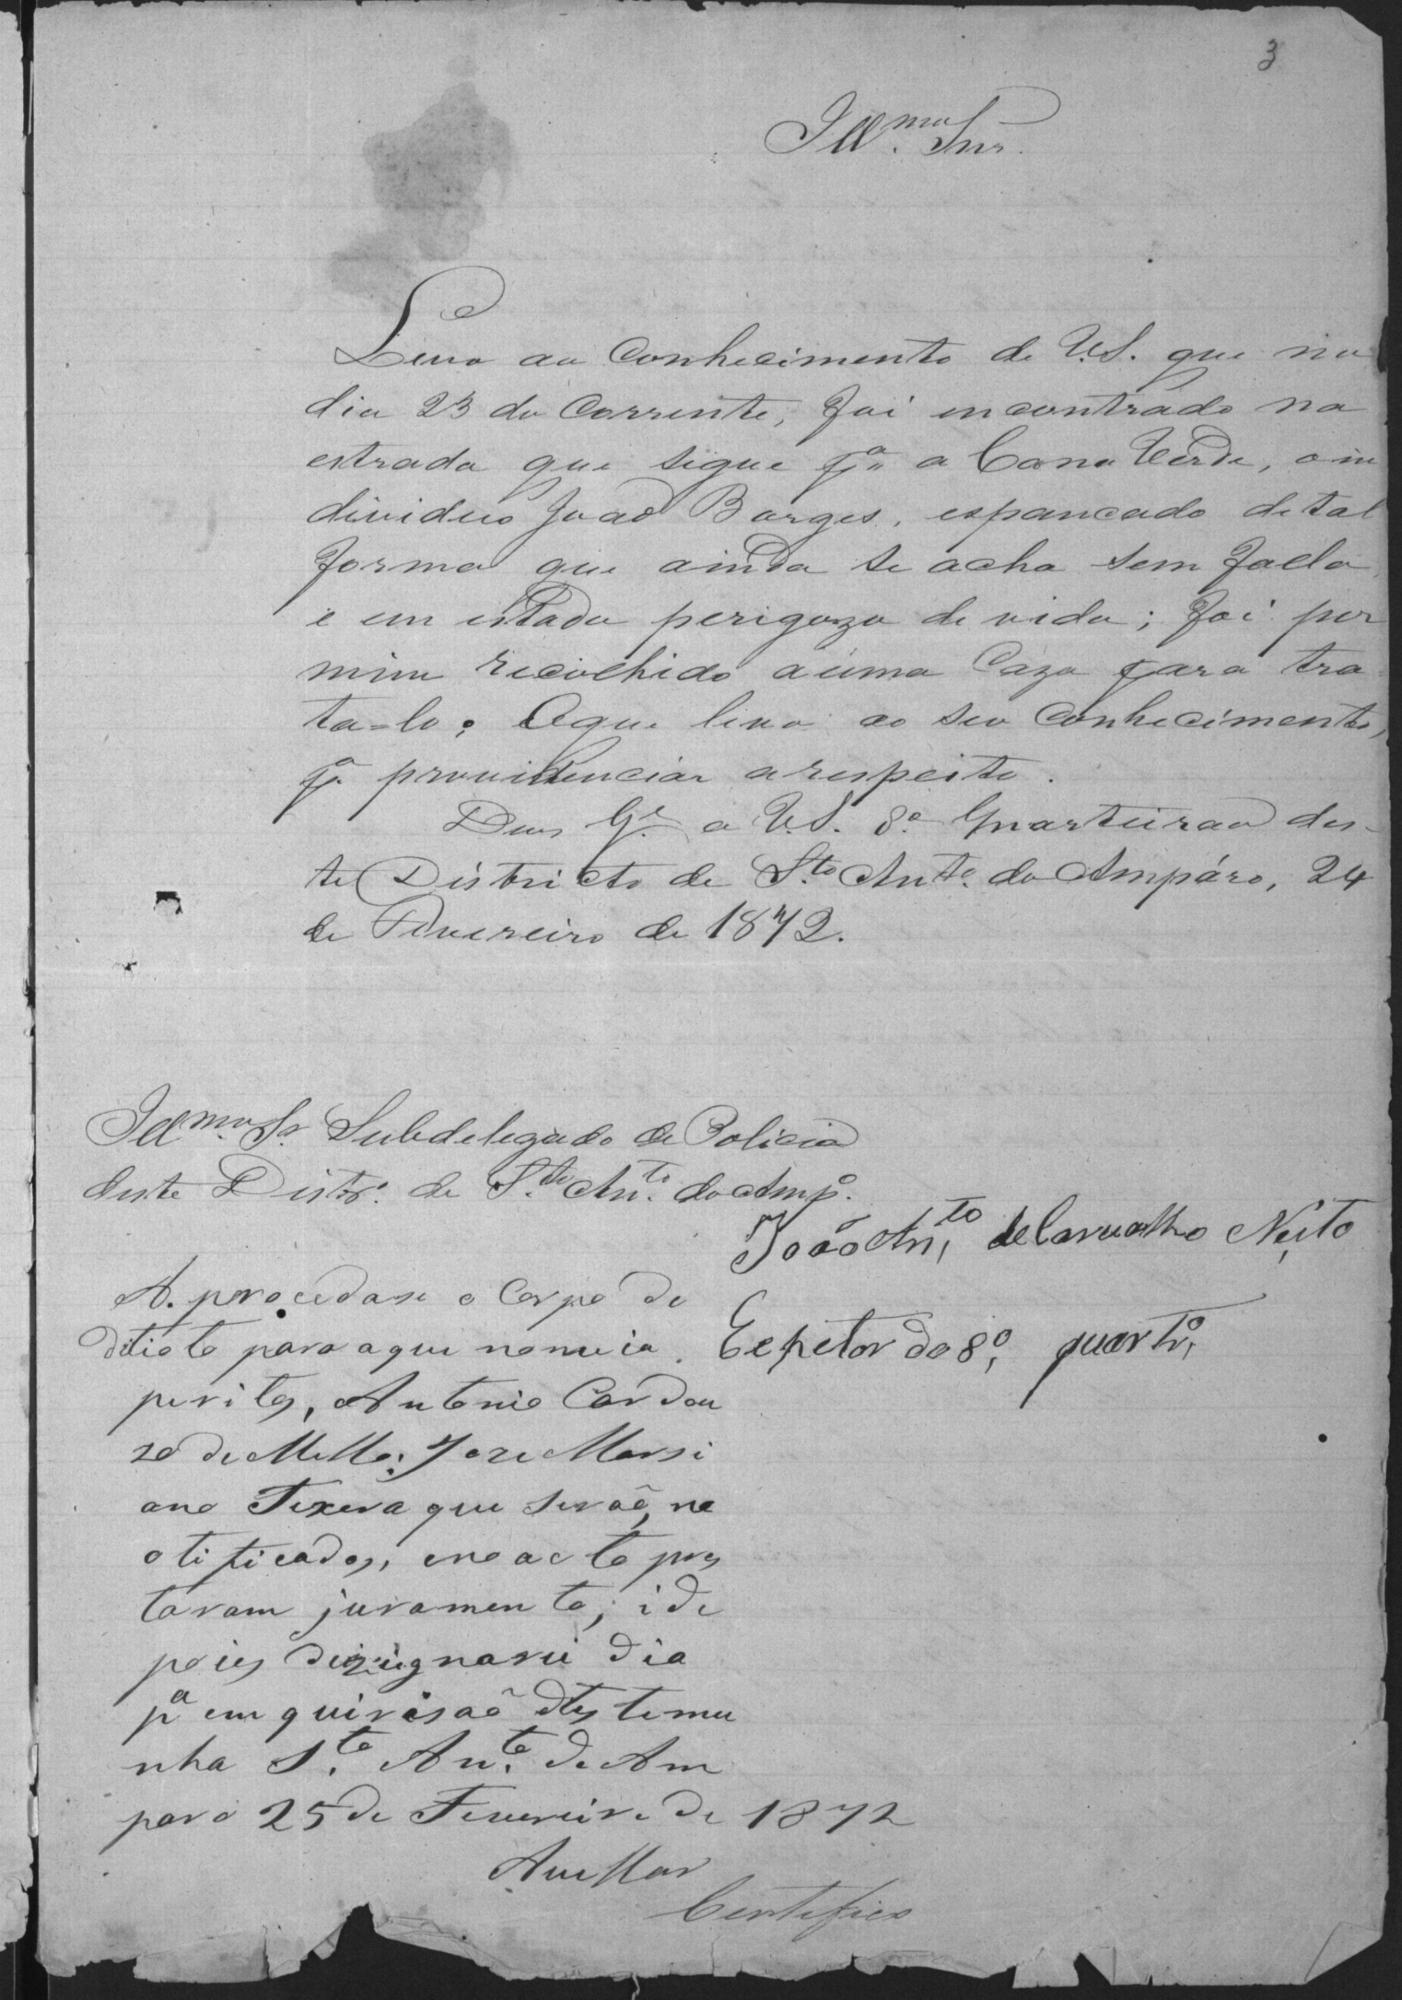 3
Illmo. Snr.
Levo ao Conhecimento de V.S. que no
dia 23 do Corrente, foi encontrado na
estrada que sigue pa. a Cana Verde, o in
dividuo João Borges, espancado de tal
forma que ainda se acha sem falla
e em estado perigozo de vida; foi por
mim recolhido a uma Caza para tra
ta=lo; O que levo ao seu Conhecimento,
pa. providenciar a respeito.
Deos Ge. a V.S. 8.o Quarteirão des-
te Districto de Sto. Anto. do Ampáro, 24
de Fevereiro de 1872.
Illmo. Sr. Subdelegado de Policia
deste Distro. de Sto. Anto. do Ampo.
João Anto. de Carvalho Neito
Ecpetor do 8o, quartro,
A. procedase o Corpo de
ditioto para a que nomeio
peritos, Antonio Cardou
zo de Mello; Joze Marsi
ano Texera que serão, no
otificados, e no acto pres
taram juramento, i de
pois dezignarei dia
pa em quirisão dtes temu
nha Sto. Anto. do Am
paro 25 de Fevereiro de 1872
Avellar
Certifico